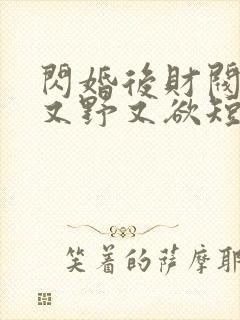 閃婚後財閥
又野又欲短
笑着的薩摩耶